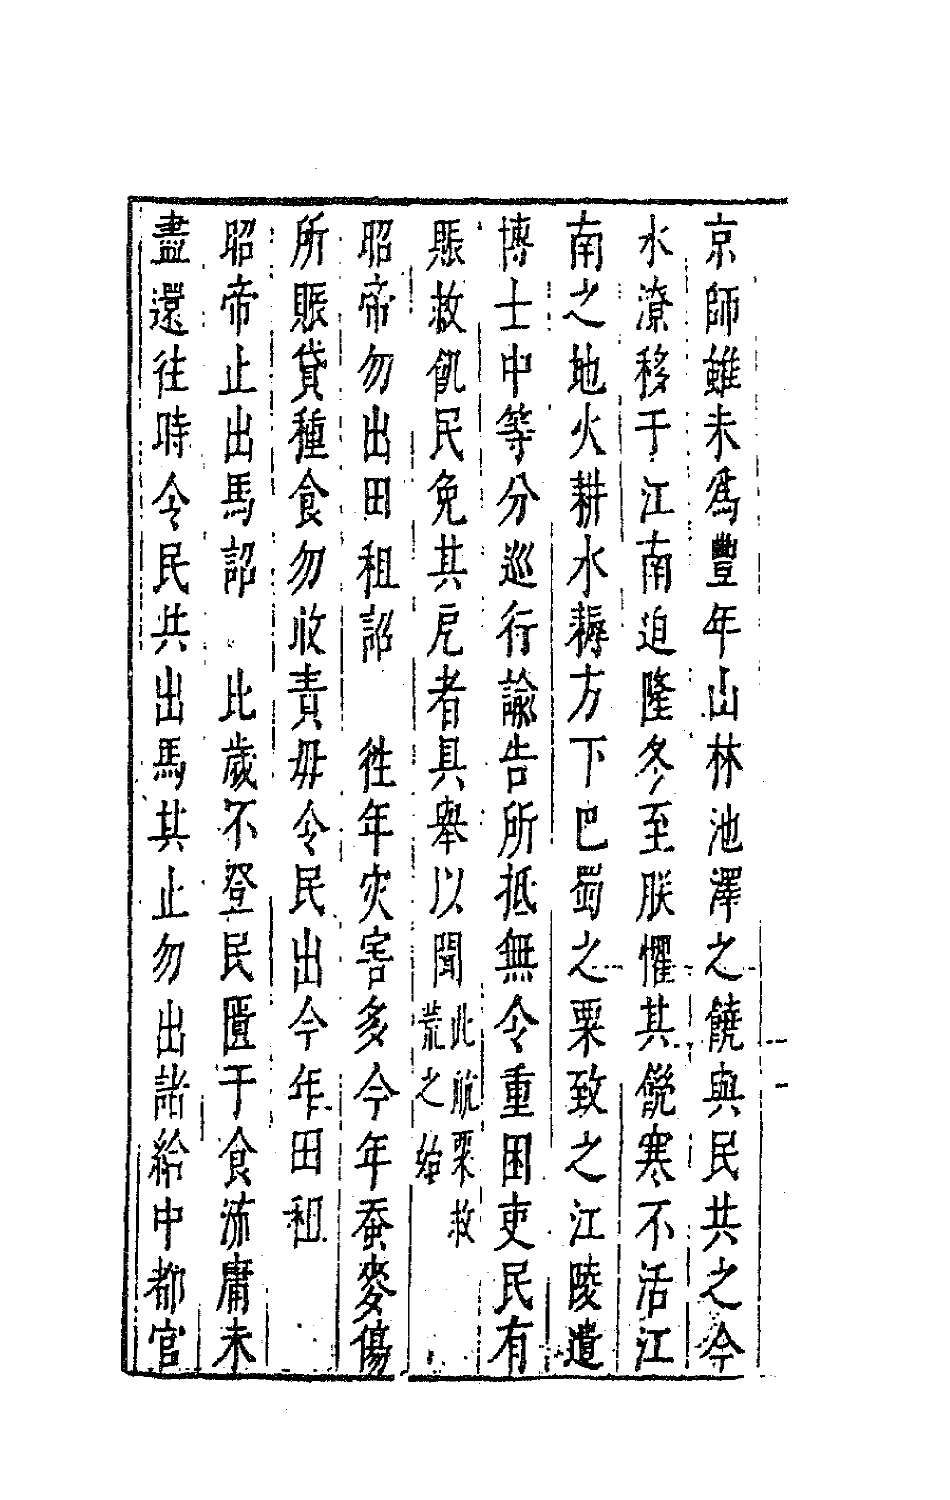 京師雖未爲豐年山林池澤之饒與民共之今
水潦移于江南迫隆冬至朕懼其飢寒不活江
南之地火耕水耨方下巴蜀之粟致之江陵遣
博士中等分巡行諭告所抵無令重困吏民有
賑救飢民免其戹者具舉以聞此航粟救
荒之始
昭帝勿出田租詔　徃年灾害多今年蚕麥傷
所賑貸種食勿收責毋令民出今年田租
昭帝止出馬詔　比歲不登民匱于食流庸未
盡還往時令民共出馬其止勿出諸給中都官